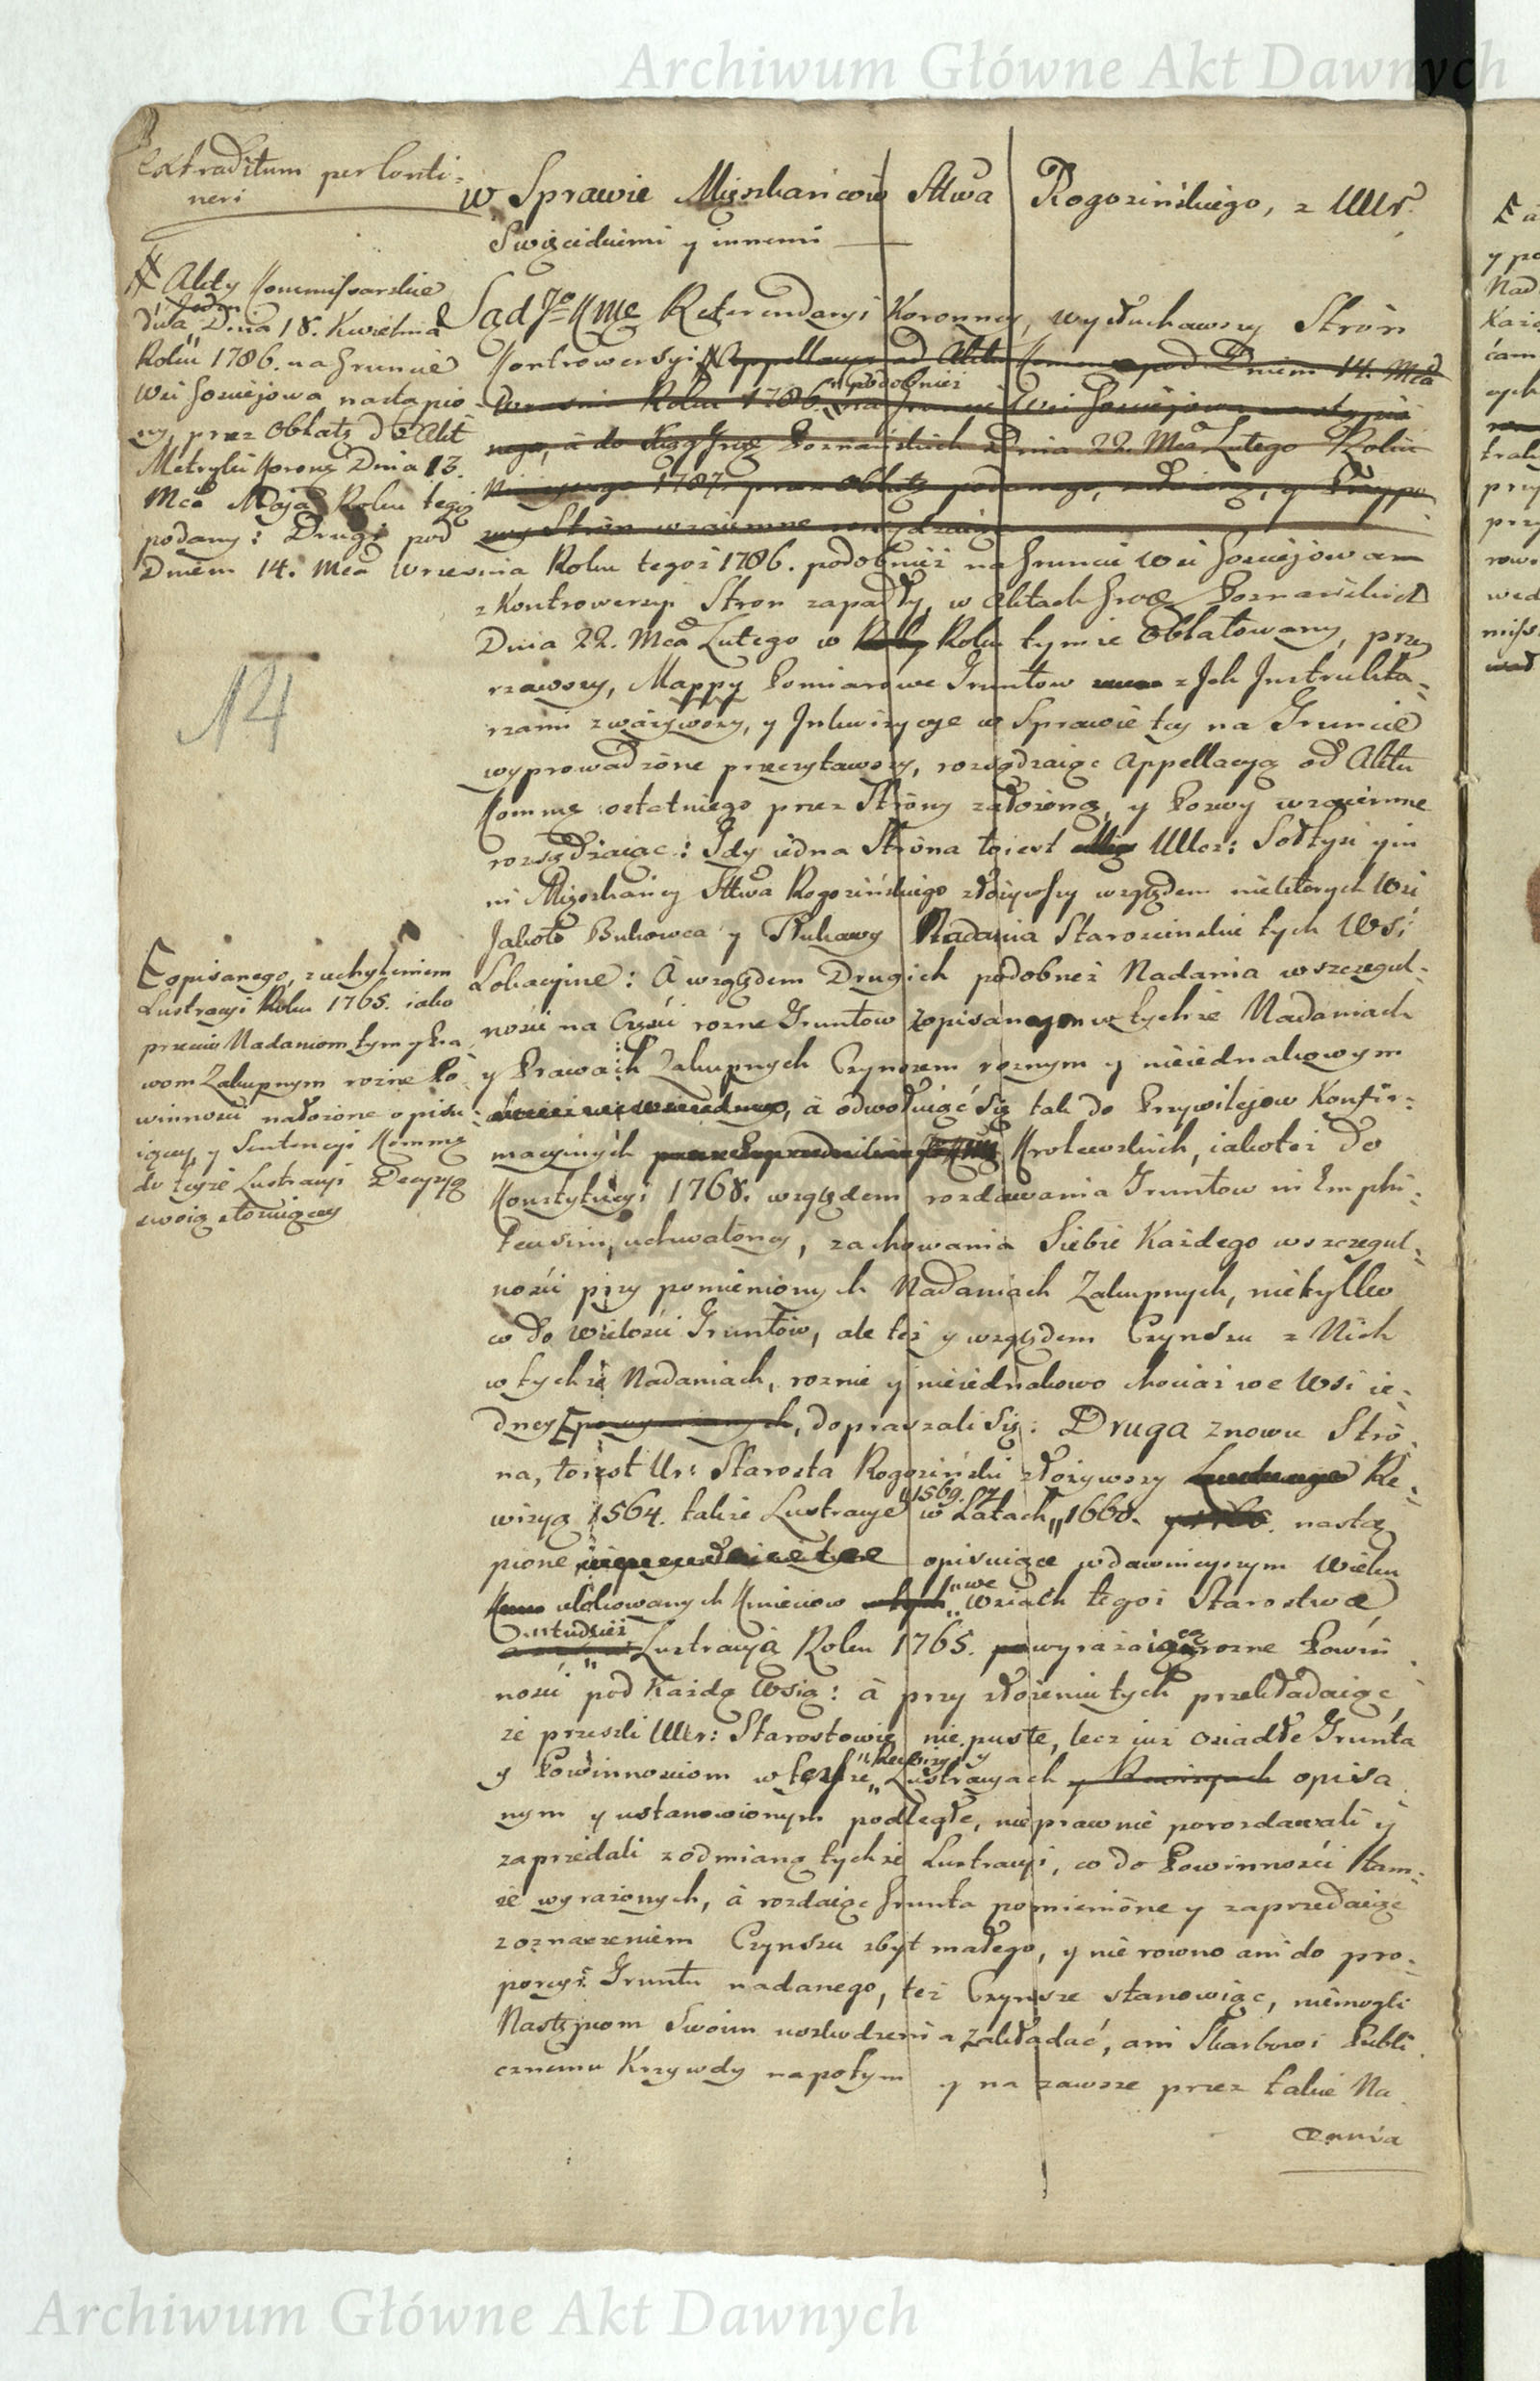 Archiwum Główne Akt Dawnych
Extraditum per Conti-
neri
w Sprawie Mieszkańcow Sttwa Rogozińskiego, z UUr.
Swięcickiemi y innemi
# Akty Kommissarskie
dwa, Jeden Dnia 18. Kwietnia
Roku 1786. na Gruncie
Wsi Gosciejowa nastąpio-
ny, przez Oblatę do Akt
Metryki Koronney Dnia 13.
Mca Maja Roku tegoż
podany: Drugi pod
Sąd JoKMci Referendaryi Koronney, wysłuchawszy Stron
Kontrowersyi # Appellacyi od Aktu pod Dniem 14. Mca
Wrzesnia Roku 1786. podobnież na Gruncie Wsi Gosciejowa nastąpio-
nego, à do Xiąg Grod. Poznańskich Dnia 22. Mca Lutego Roku
1787. przez Oblatę podanego, y Przypo-
zwy Stron wzaiemne
Dniem 14. Mca Wrzesnia Roku tegoż 1786. podobnież na Gruncie Wsi Gosciejowa
z Kontrowersyi Stron zapadły, w Aktach Grod. Poznańskich
Dnia 22. Mca Lutego w Roku tymże oblatowany, przey
rzawszy, Mappy Pomiarowe Gruntow z Jch Jnstrukta-
rzami zważywszy, y Jnkwizycye w Sprawie tey na Gruncie
wyprowadzone przeczytawszy, rozsądzaiąc Appellacyą od Aktu
Komms ostatniego przez Strony założoną, y Pozwy wzaiemne
rozsądzaiąc: Gdy iedna Strona toiest UUcz: Sołtysi y in
ni Mieszkańcy Sttwa Rogozińskiego złożywszy względem niektorych Wsi
Jakoto Bukowca y Tłukawy Nadania Starościnskie tych Wsi
Lokacyine: À względem Drugich podobnież Nadania w szczegul-
ności na Części rozne Gruntow z opisanym w tychże Nadaniach
y Prawach Zakupnych Czynszem roznym y nieiednakowym
à odwołuiąc się tak do Przywilejow Konfir-
macyinych Krolewskich, iakoteż do
Konstytucyi 1768. względem rozdawania Gruntow in Emphi-
teusim, uchwaloney, zachowania Siebie Każdego w szczegul-
ności przy pomienionych Nadaniach Zakupnych, nietylko
co do wielości Gruntów, ale też y względem Czynszu z Nich
w tychże Nadaniach, roznie y nieiednakowo chociaż we Wsi ie-
dney [ , dopraszali się: Druga znowu Stro-
na, toiest Ur: Starosta Rogoziński złożywszy Re-
wizyą 1564. takze Lustracye w Latach 1569. y 1660. nastą
pione opisuiące w dawnieyszym Wieku
ulokowanych Kmieciow we Wsiach tegoż Starostwa
Lustracyą Roku 1765. wyrażaiącą rozne Powin
ności pod Każdą Wsią: à przy złożeniu tych przekładaiąc
że przeszli UUr: Starostowie nie puste, lecz już osiadłe Grunta
y Powinnosciom w tychże Rewizyi y Lustracyach y Rewizyach opisa
nym y ustanowionym podległe, nieprawnie porozdawali y
zaprzedali z odmianą tychże Lustracyi, co do Powinności tam-
że wyrażonych, à rozdaiąc Grunta pomienione y zaprzedaiąc
z oznaczeniem Czynszu zbyt małego, y nie rowno ani do pro-
porcyi Gruntu nadanego, też Czynsze stanowiąc, niemogli
Następcom Swoim uszkodzenia zakładać, ani Skarbowi Publi
cznemu Krzywdy napotym y na zawsze przez takie Na
dania
14
[ opisanego, z uchyleniem
Lustracyi Roku 1765. iako
przeciw Nadaniom tym y Pra
wom Zakupnym rozne Po
winności nałożone opisu-
iącey, y Sentencyi Komms
do teyże Lustracyi Decyzyą
swoią stosuiącey
Archiwum Główne Akt Dawnych